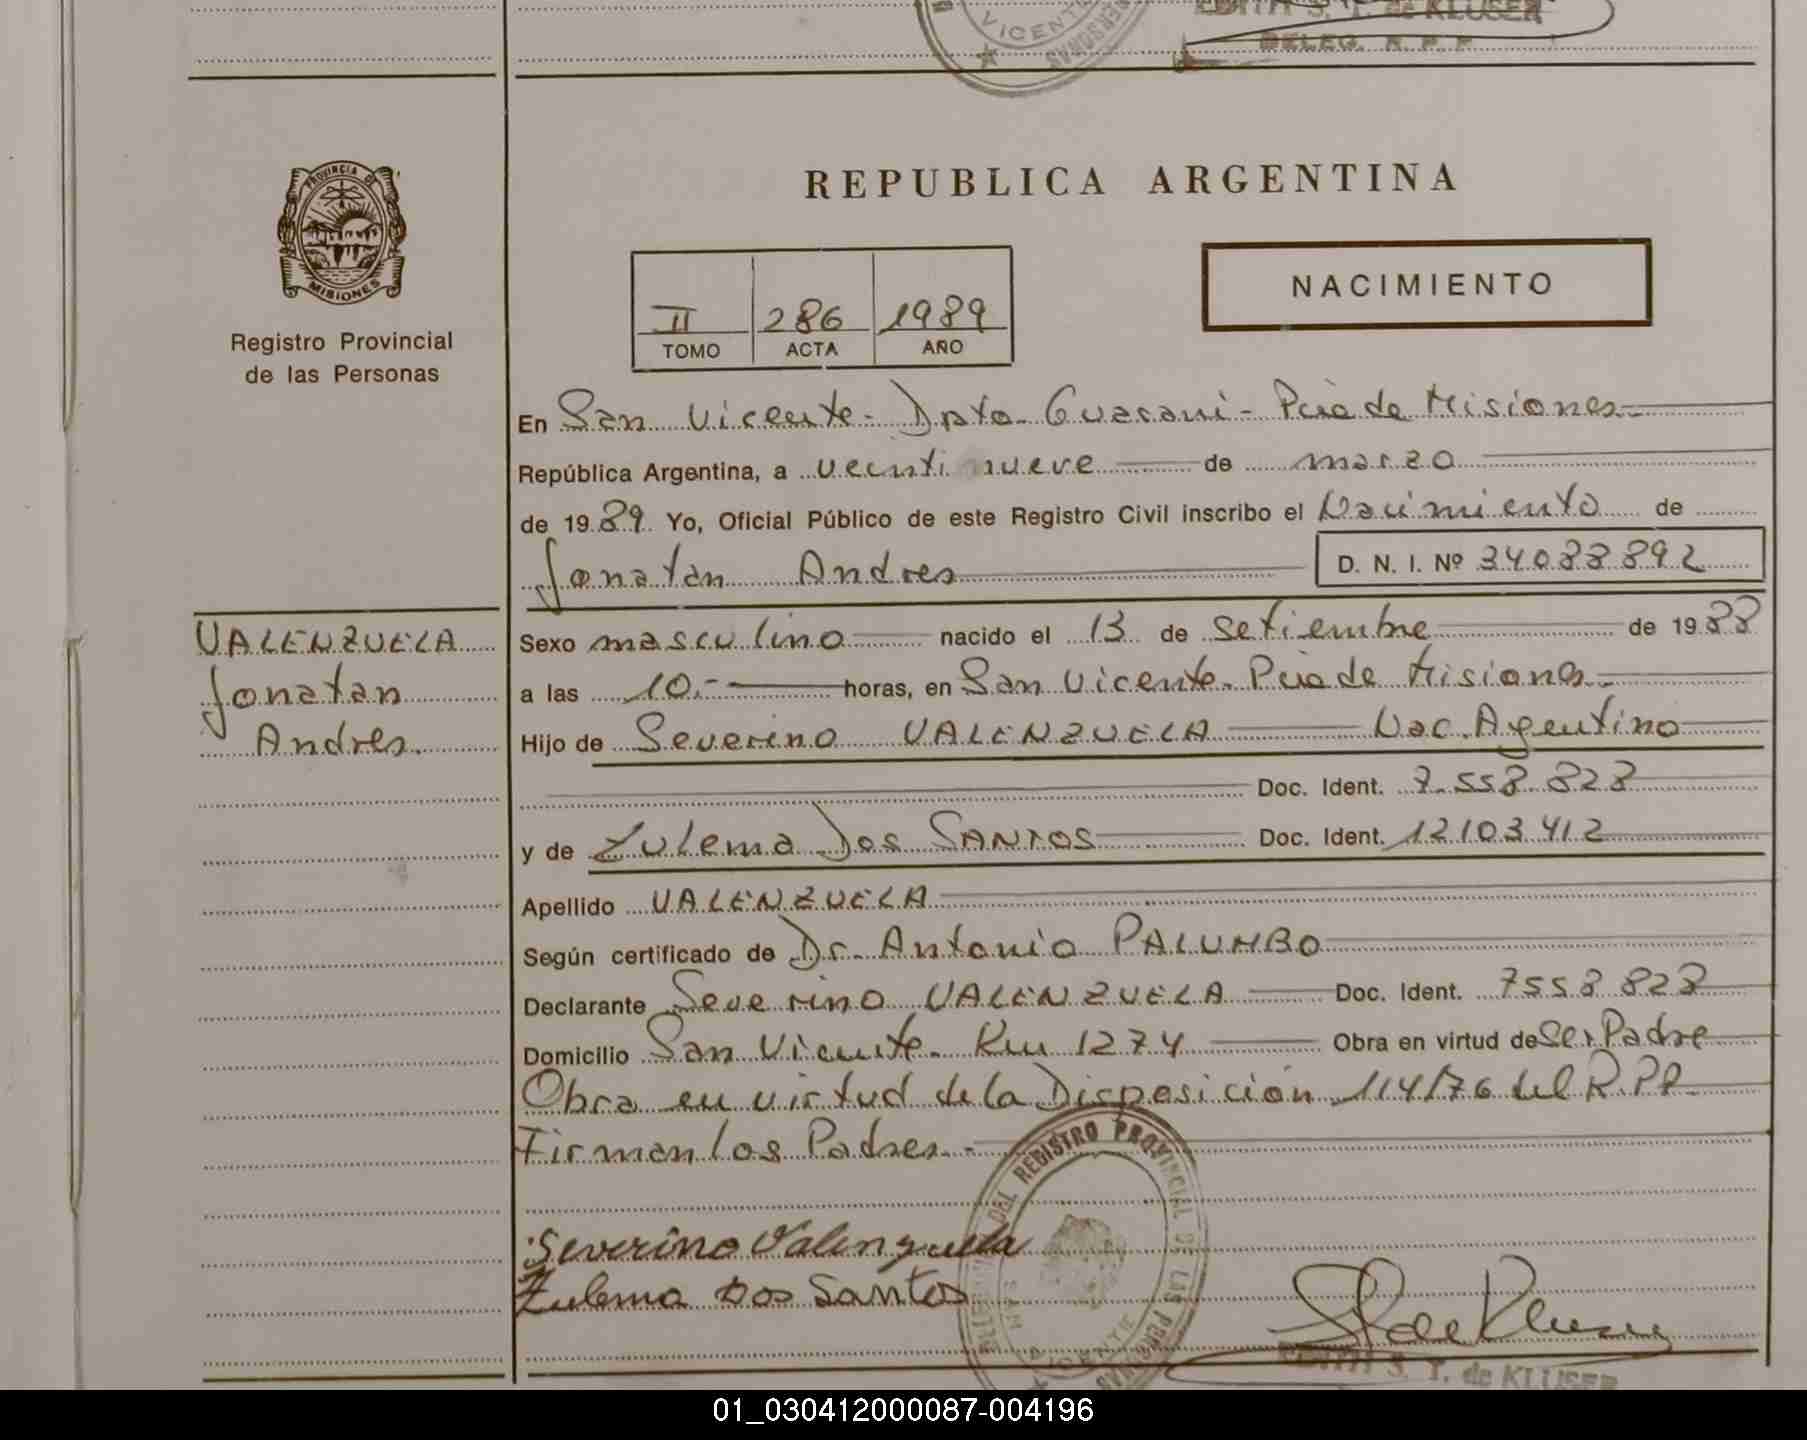 VICENTE
PERSONAS
EDITH S. T. de KLUSER
DELEG. R. P. P.
PROVINCIA DE
MISIONES
Registro Provincial
de las Personas
REPUBLICA ARGENTINA
NACIMIENTO
II 286 1989
TOMO ACTA AÑO
En San Vicente - Dpto. Guarani - Pcia de Misiones.-
República Argentina, a veinti nueve de marzo
de 1989 Yo, Oficial Público de este Registro Civil inscribo el Nacimiento de
Jonatan Andres D. N. I. Nº 34088892
VALENZUELA
Jonatan
Andres.
Sexo masculino nacido el 13 de Setiembre de 1988
a las 10.- horas, en San Vicente. Pcia de Misiones.-
Hijo de Severino VALENZUELA Nac. Argentino
Doc. Ident. 7.558.828
y de Zulema Dos SANTOS Doc. Ident. 12103412
Apellido VALENZUELA
Según certificado de Dr. Antonio PALUMBO
Declarante Severino VALENZUELA Doc. Ident. 7558828
Domicilio San Vicente. Km 1274 Obra en virtud de Ser Padre
Obra en virtud de la Disposición 114/76 del R.P.P
Firman los Padres.-
DEL REGISTRO PROVINCIAL DE LAS PERSONAS
SAN VICENTE
Severino Valenzuela
Zulema Dos Santos
S T de Kluser
EDITH S. T. de KLUSER
01_030412000087-004196